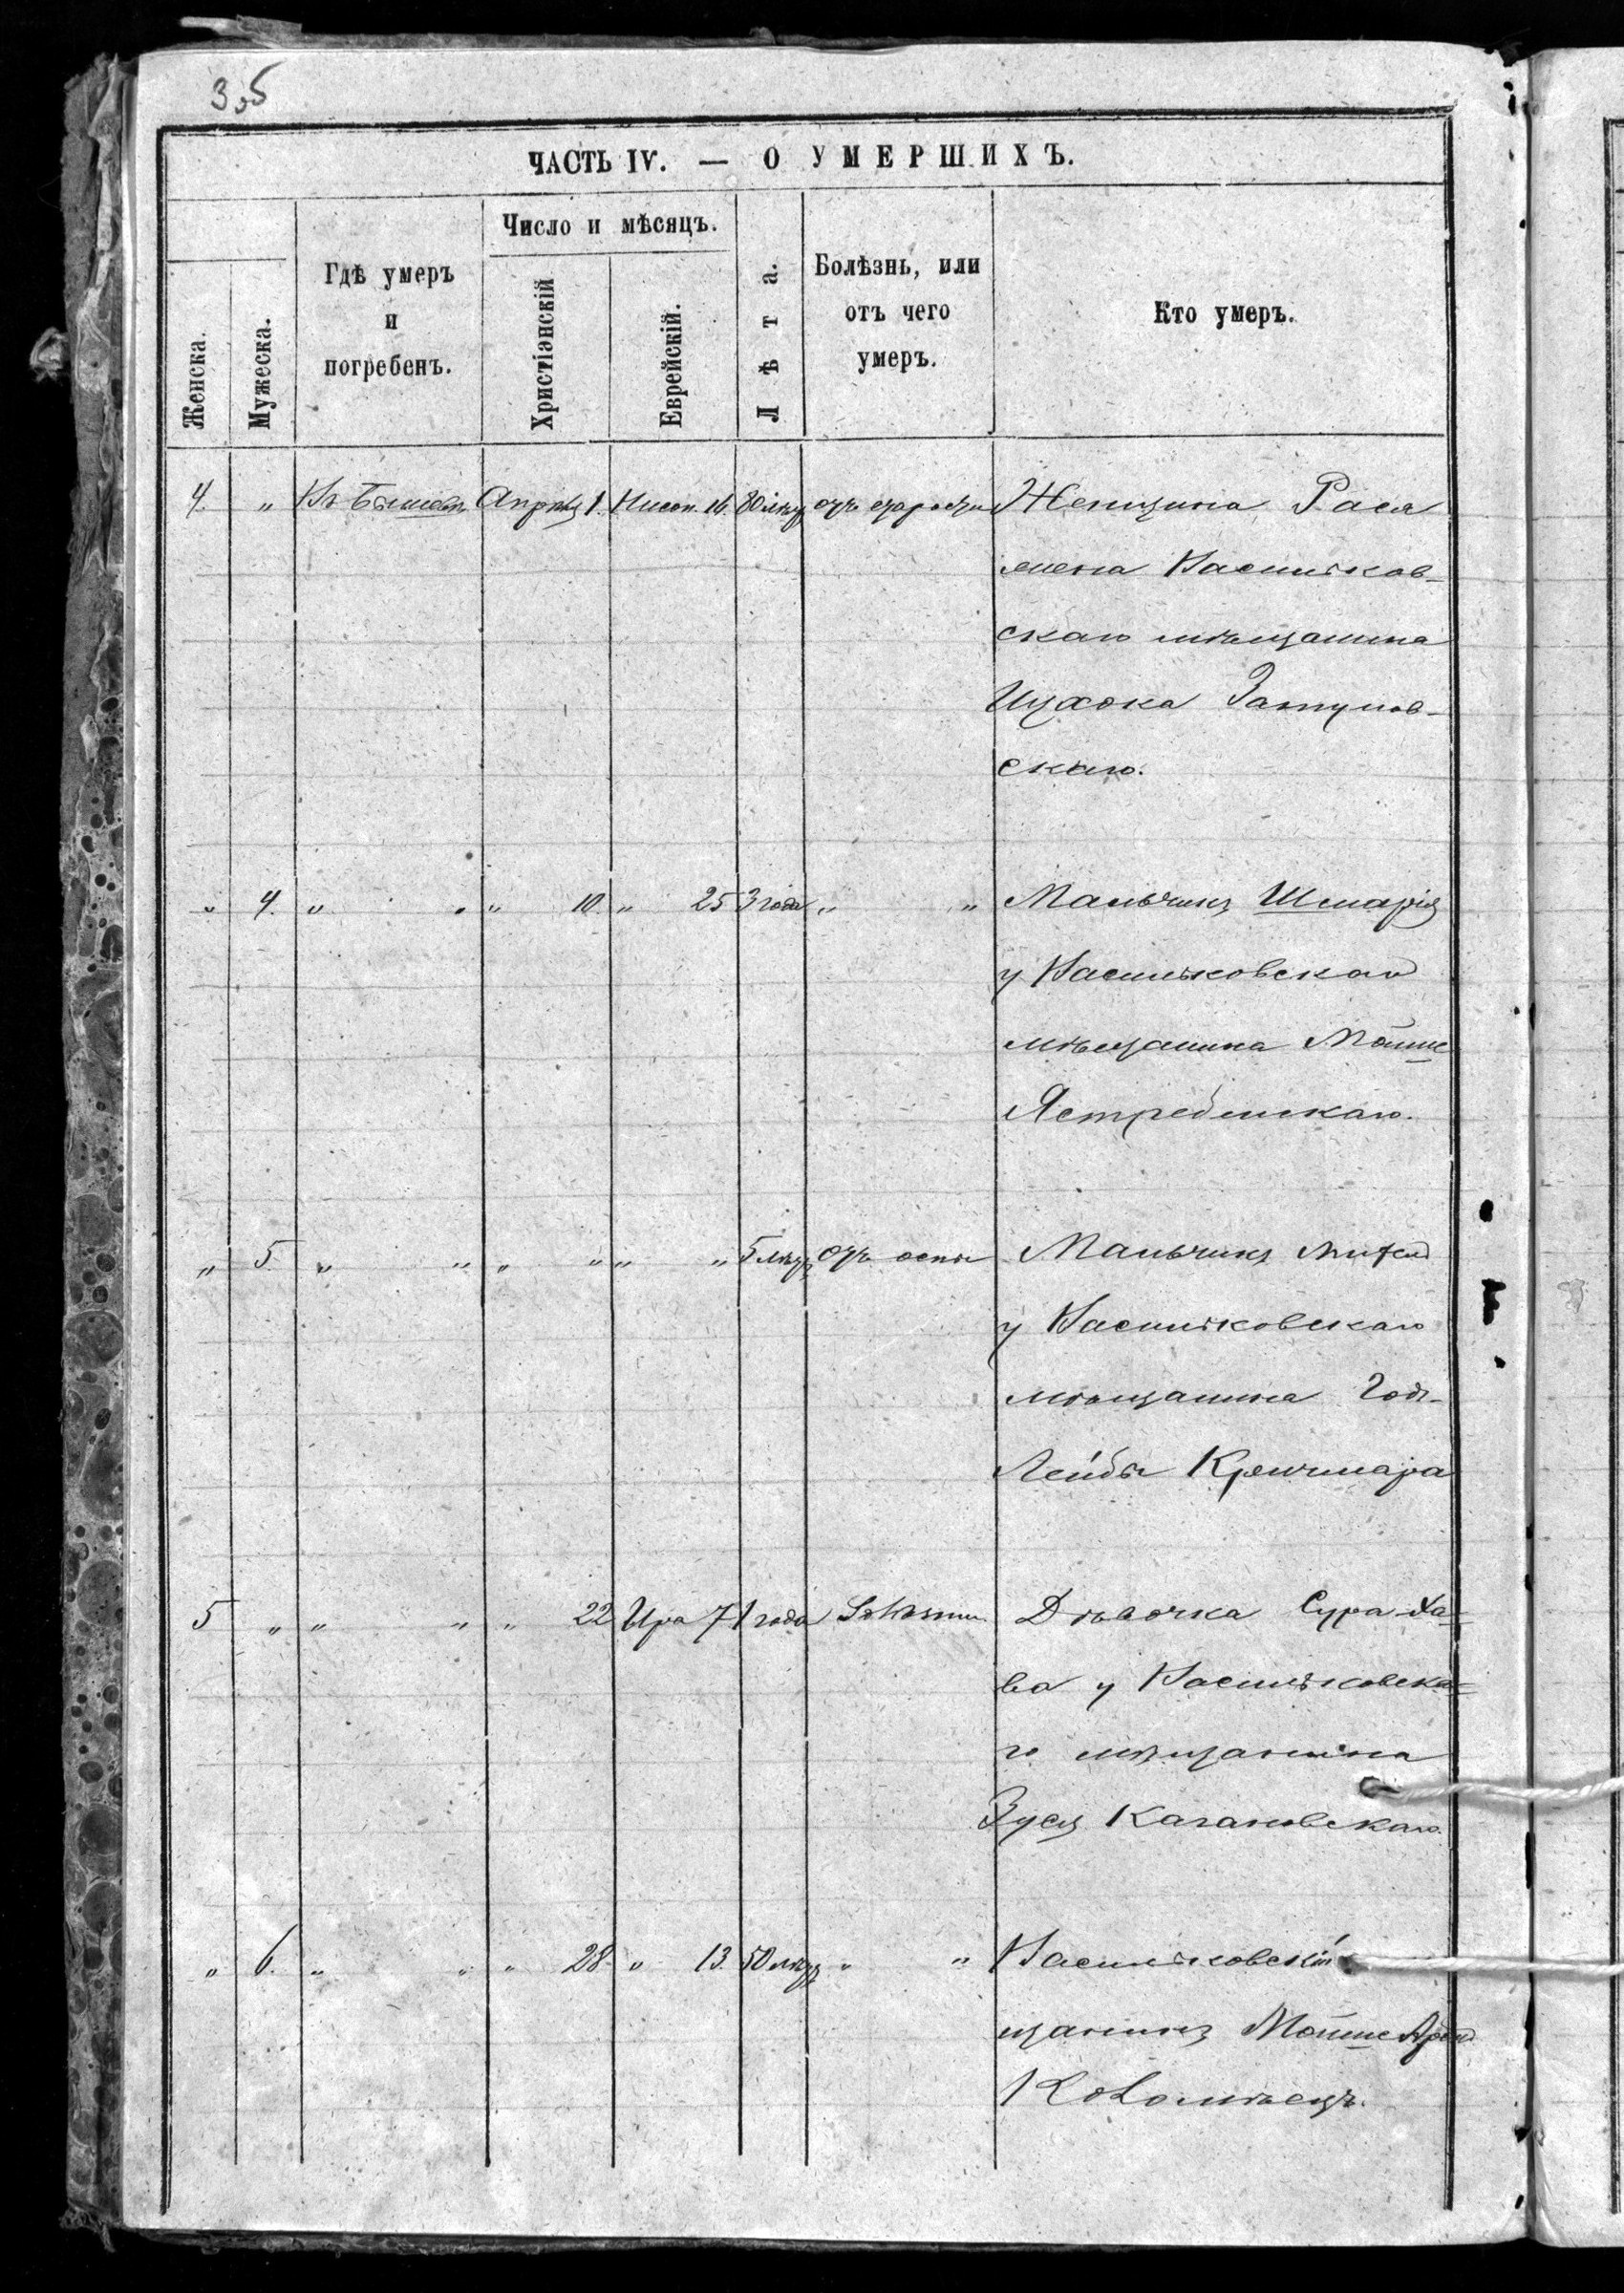 35
ЧАСТЬ IV. — О УМЕРШИХЪ.
Женска.
Мужеска.
Гдѣ умеръ
и
погребенъ.
Число и мѣсяцъ.
Христіанскій
Еврейскій.
Лѣта.
Болѣзнь, или
отъ чего
умеръ.
Кто умеръ.
4. " Въ Бышевѣ Апрѣля 1. Нисон. 16. 80 лѣтъ отъ старости Женщина Рася
жена Васильков-
скаго мѣщанина
Ицхока Затулов-
скаго.
" 4. " " " 10. " 25 3 года " " Мальчикъ Шмарія
у Васильковскаго
мѣщанина Мошие
Ястребинскаго.
" 5. " " " " " " 5 лѣтъ Отъ оспы Мальчикъ
у Васильковскаго
мѣщанина Год-
Лейбы Кречмара
5 " " " " 22 Ира 7 1 года Дѣвочка Сура-Ха-
ва у Васильковска=
го мѣщанина
Зуся Кагановскаго.
" 6. " " " 28 " 13. 50 лѣтъ " " Васильковскій
щанинъ Мошие
Коломѣецъ.